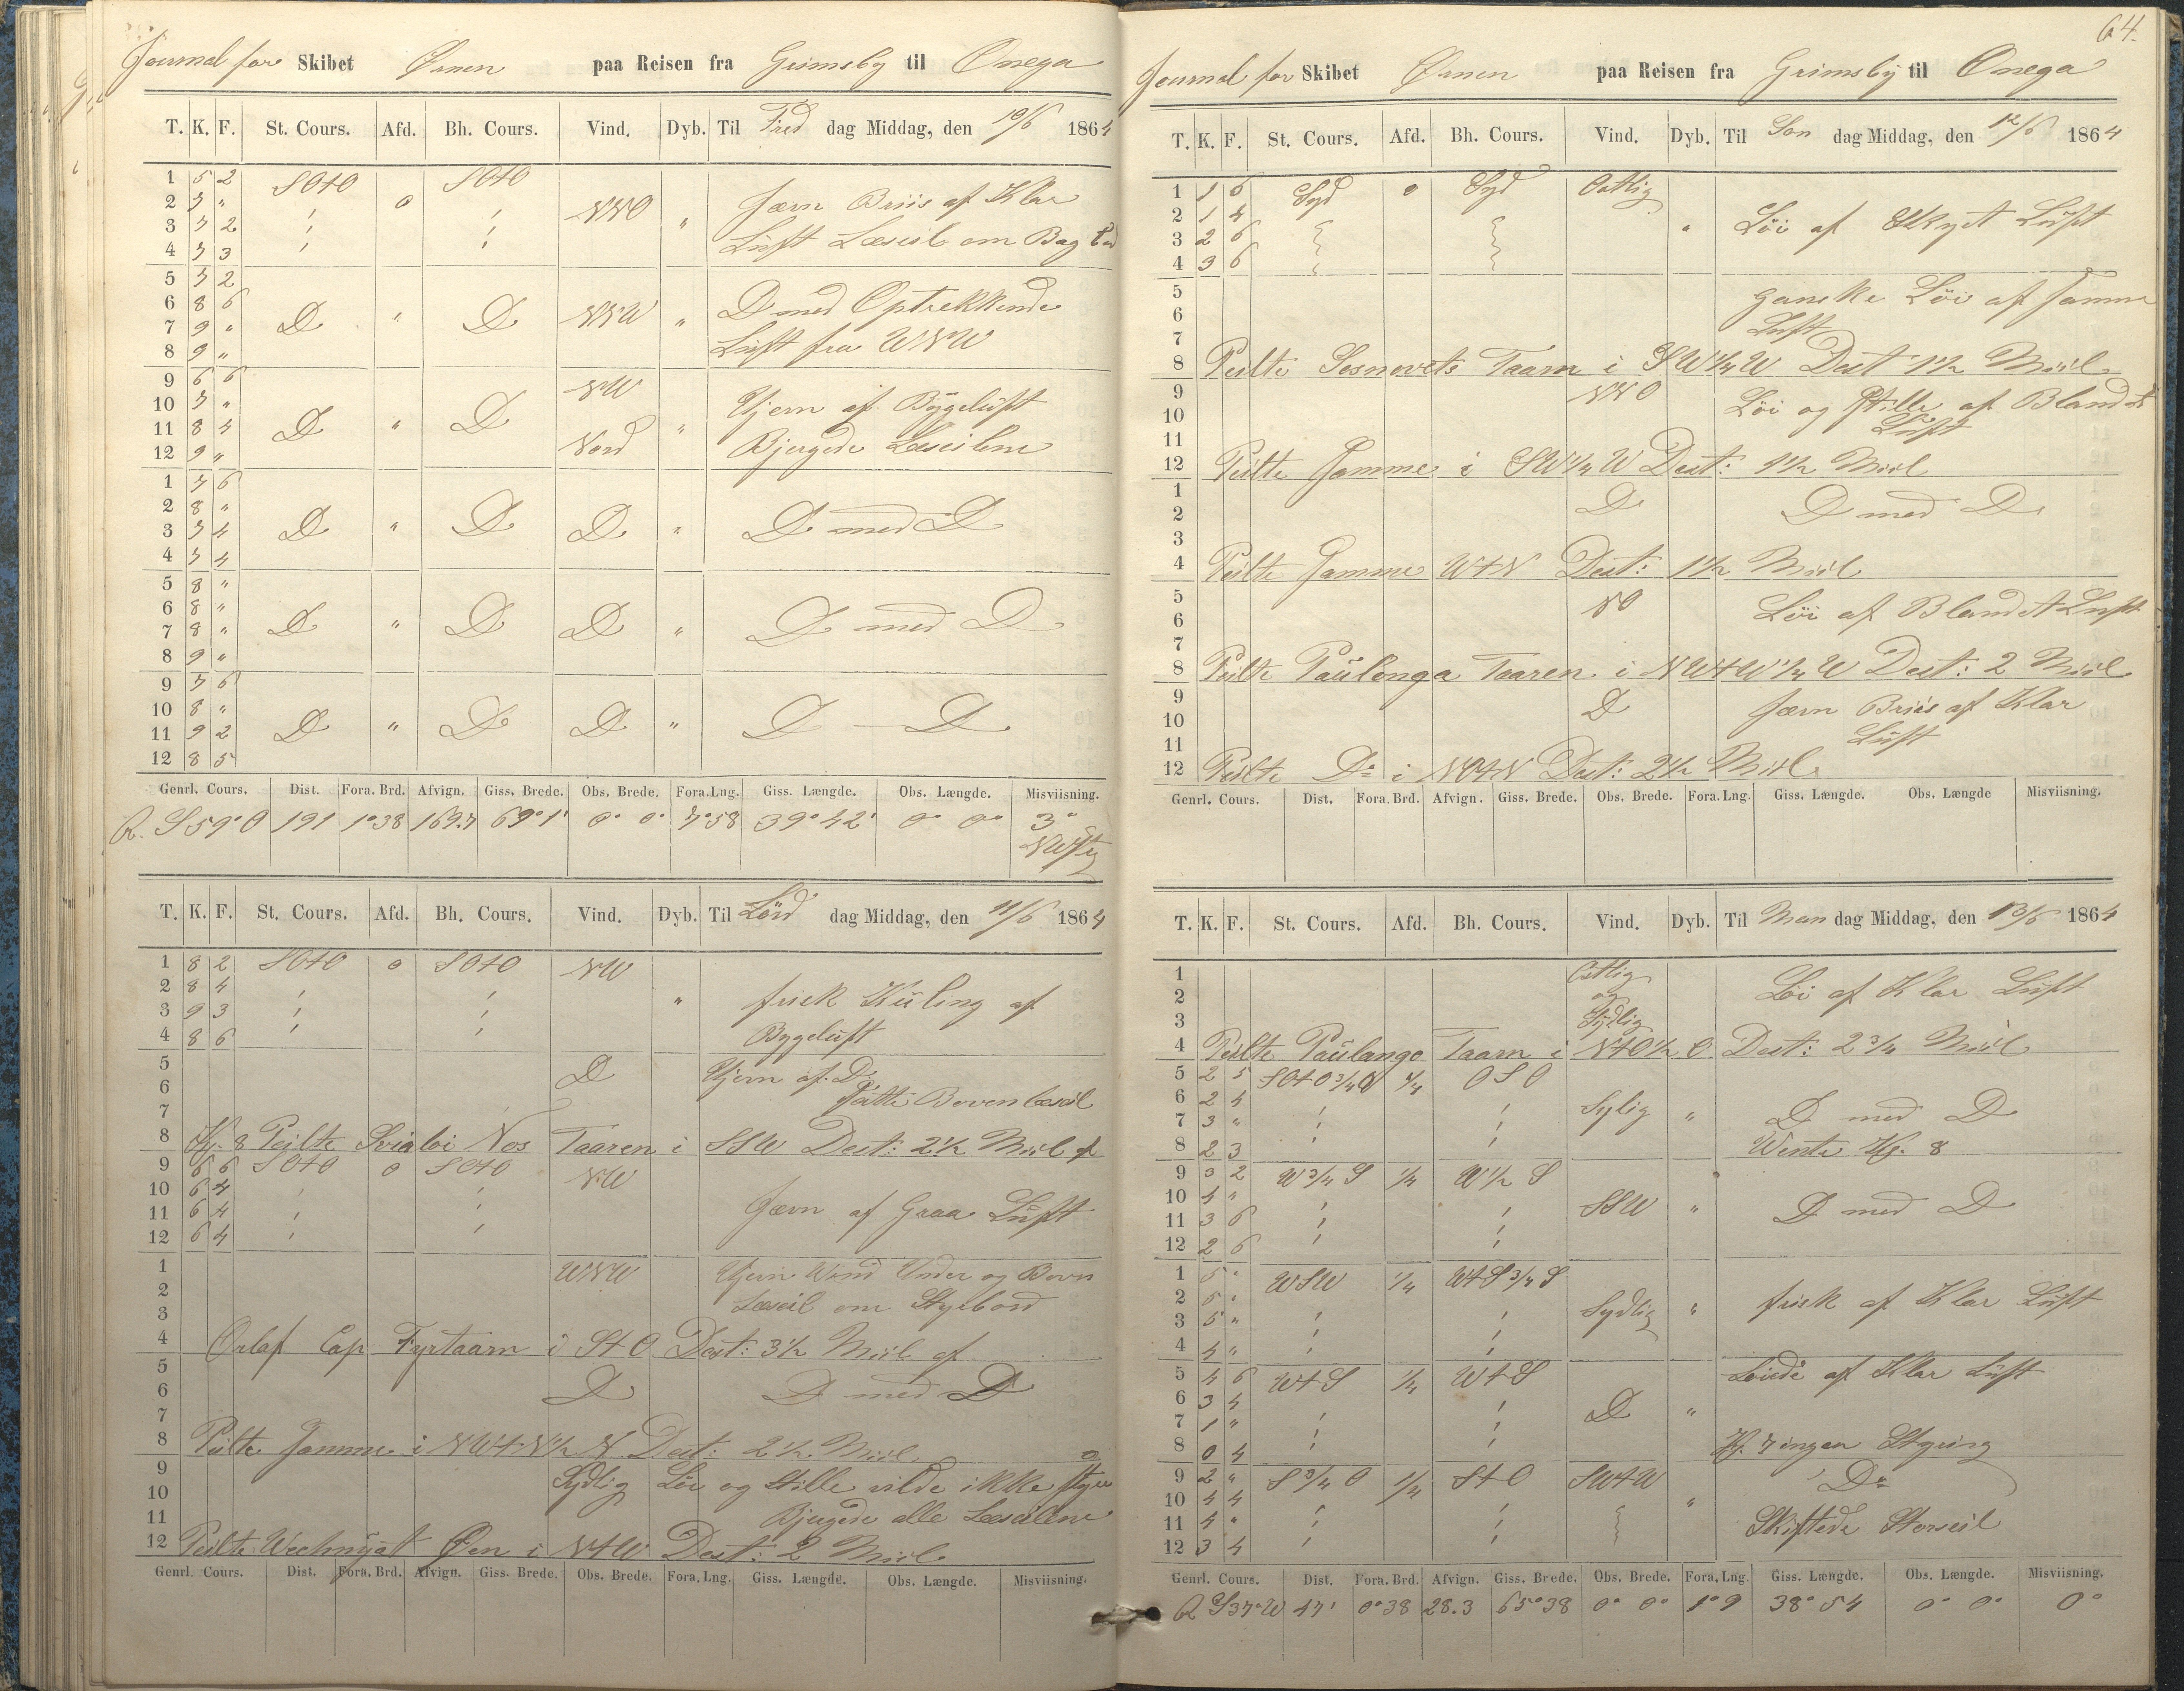 Journal for Skibet Ørnen paa Reisen fra Grimsby til Onega
T. K. F. St. Cours. Afd. Bh. Cours. Vind. Dyb. Til Fred dag Middag, den 10/6 1864
1 5 2 SOtO SOtO
2 7 " o NNO " Jævn Briis af Klar
3 7 2
4 7 3 Luft Læseil om Bag bord
5 7 2
6 8 6 D " D NNW " D med Optrekkende
7 9 "
8 9 " Luft fra WNW
9 6 6 NW
10 7 " Ujevn af Bygeluft
11 8 4 D " D "
12 9 " Nord Bjergede Læseilene
1 7 6
2 8 "
3 7 4 D " D D " D med D
4 7 4
5 8 "
6 8 "
7 8 " D " D D " D med D
8 9 "
9 7 6
10 8 "
11 9 2 D " D D " D — D
12 8 5
Genrl. Cours. Dist. Fora. Brd. Afvign. Giss. Brede. Obs. Brede. Fora. Lng. Giss. Længde. Obs. Længde. Misviisning.
R. S59°O 191 1°38 163.7 69°1' 0° 0° 7°58 39°42' 0° 0° 3°
NWstg
T. K. F. St. Cours. Afd. Bh. Cours. Vind. Dyb. Til Lörd dag Middag, den 11/6 1864
1 8 2 SOtO o SOtO NW
2 8 4
3 9 3 " frisk Kuling af
4 8 6 Bygeluft
5 D Ujevn af D
6 Satte Boven læseil
7
8 Kl. 8 Peilte Sviatoi Nos Taaren i SSW Dest: 2 1/2 Miil af
9 6 6 SOtO o SOtO NW
10 6 4
11 6 4 Jævn af Graa Luft
12 6 4
1 WNW Ujevn Wind Under og Boven
2 Læseil om Styrbord
3
4 Orlof Cap Fyrtaarn i StO Dest: 3 1/2 Miil af
5
6 D D med D
7
8 Peilte Samme i NWtN 1/2 N Dest: 2 1/2 Miil
9 Sydlig Löi og Stille vilde ikke styre
10
11 Bjergede alle Læseilene
12 Peilte Øen i NtW Dest: 2 Miil
Genrl. Cours. Dist. Fora. Brd. Afvign. Giss. Brede. Obs. Brede. Fora. Lng. Giss. Længde. Obs. Længde. Misviisning.
64.
Journal for Skibet Ørnen paa Reisen fra Grimsby til Onega
T. K. F. St. Cours. Afd. Bh. Cours. Vind. Dyb. Til Søn dag Middag, den 12/6 1864
1 1 6 Syd o Syd Ostlig
2 1 4
3 2 6 " Löi af Skyet Luft
4 3 6
5 ganske Löi af samme
6
7 Luft
8 Peilte Sosnovets Taarn i SW 1/4 W Dest 1 1/2 Miil
9 NNO Löi og Stille af Blandet
10
11 Luft
12 Peilte Samme i SW 1/4 W Dest: 1 1/2 Miil
1 D D med D
2
3
4 Peilte Samme WtN Dest: 1 1/2 Miil
5 NO Löi af Blandet Luft
6
7
8 Peilte Paulonga Taaren i NWtW 1/4 W Dest: 2 Miil
9 D Jævn Briis af Klar
10
11 Luft
12 Peilte Do i NOtN Dest: 2 1/2 Miil
Genrl. Cours. Dist. Fora. Brd. Afvign. Giss. Brede. Obs. Brede. Fora. Lng. Giss. Længde. Obs. Længde Misviisning.
T. K. F. St. Cours. Afd. Bh. Cours. Vind. Dyb. Til Man dag Middag, den 13/6 1864
1 Ostlig Löi af Klar Luft
2 og
3 Sydlig
4 Peilte Paulango Taarn i NtO 1/2 O Dest: 2 3/4 Miil
5 2 5 SOtO 3/4 O 1/4 OSO
6 2 4 Sylig " D med D
7 3 "
8 2 3 Wente Kl. 8
9 3 2 W 3/4 S 1/4 W 1/2 S
10 4 " SSW " D med D
11 3 6
12 2 6
1 5 " WSW 1/4 WtS 3/4 S
2 5 " Sydlig " frisk af Klar Luft
3 5 "
4 4 "
5 4 6 WtS 1/4 WtS Löiede af Klar Luft
6 3 4
7 1 " D "
8 0 4 Kl. 7 ingen Styring
9 2 " S 3/4 O 1/4 StO SWtW Do
10 4 4 "
11 4 " Skiftede Storseil
12 3 4
Genrl. Cours. Dist. Fora. Brd. Afvign. Giss. Brede. Obs. Brede. Fora. Lng. Giss. Længde. Obs. Længde. Misviisning.
R S37°W 47' 0°38 28.3 65°38 0° 0° 1°9 38°54 0° 0° 0°